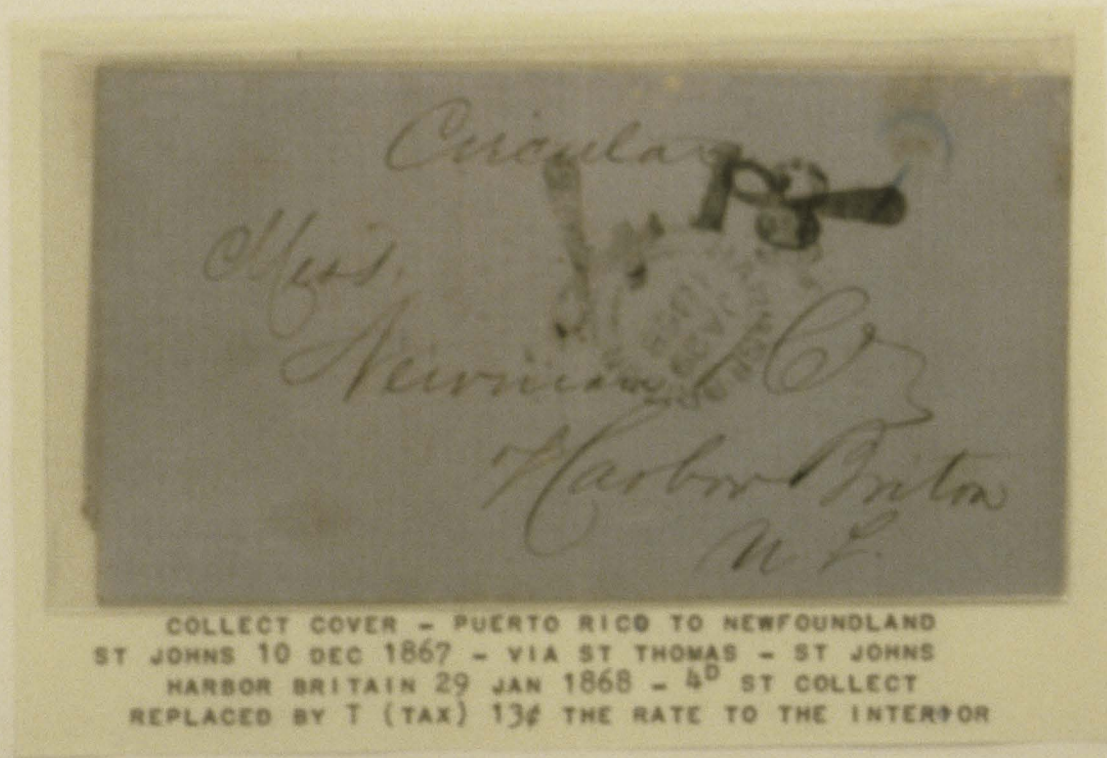 Circular
Mess.
Newman & Co
Harbor Briton
N. F.
COLLECT COVER - PUERTO RICO TO NEWFOUNDLAND
ST JOHNS 10 DEC 1867 - VIA ST THOMAS - ST JOHNS
HARBOR BRITAIN 29 JAN 1868 - 4D ST COLLECT
REPLACED BY T (TAX) 13¢ THE RATE TO THE INTERIOR